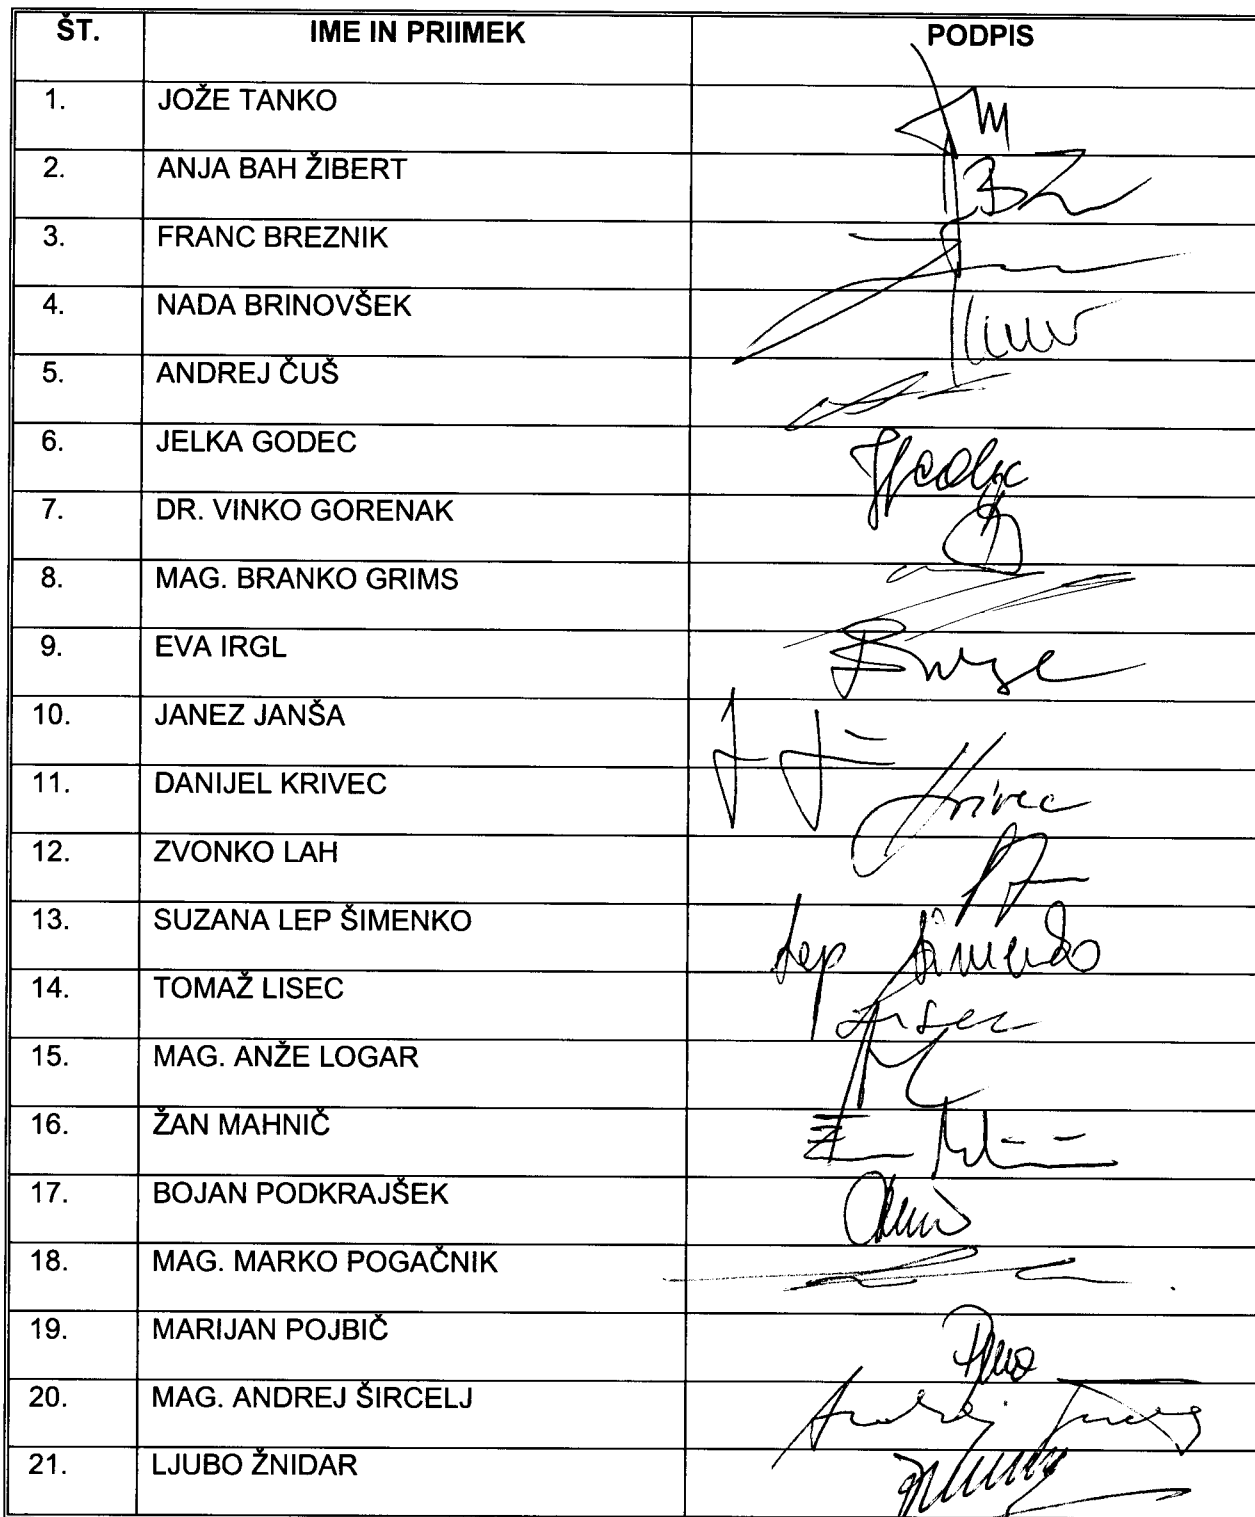 ŠT. IME IN PRIIMEK PODPIS
1. JOŽE TANKO
2. ANJA BAH ŽIBERT
3. FRANC BREZNIK
4. NADA BRINOVŠEK
5. ANDREJ ČUŠ
6. JELKA GODEC
7. DR. VINKO GORENAK
8. MAG. BRANKO GRIMS
9. EVA IRGL
10. JANEZ JANŠA
11. DANIJEL KRIVEC Krivec
12. ZVONKO LAH
13. SUZANA LEP ŠIMENKO Lep Šimenko
14. TOMAŽ LISEC Lisec
15. MAG. ANŽE LOGAR
16. ŽAN MAHNIČ
17. BOJAN PODKRAJŠEK
18. MAG. MARKO POGAČNIK
19. MARIJAN POJBIČ
20. MAG. ANDREJ ŠIRCELJ Andrej
21. LJUBO ŽNIDAR